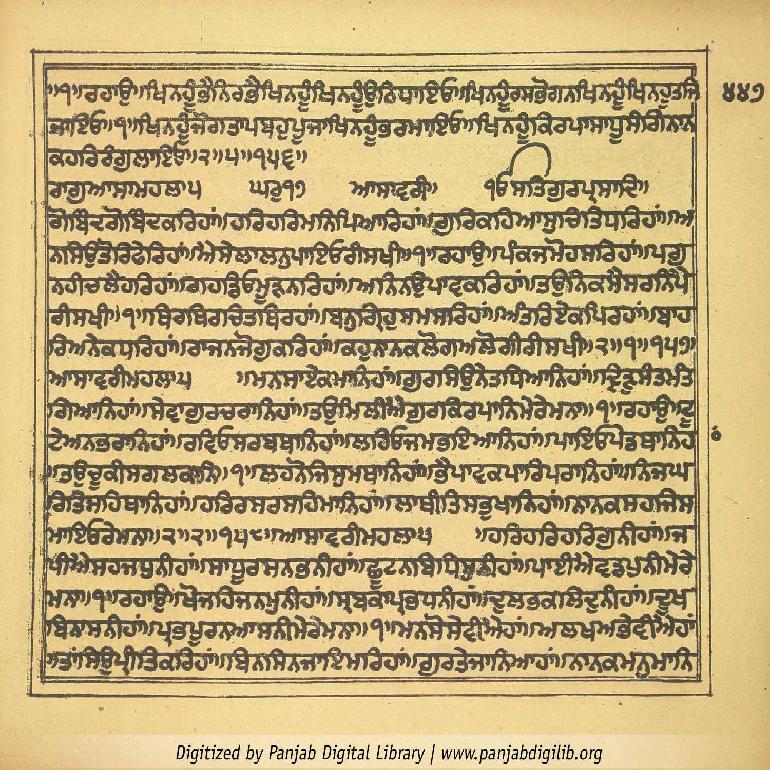 ॥੧॥ਰਹਾਉ॥ਖਿਨਹੂੰਭੈਨਿਰਭੈਖਿਨਹੂੰਖਿਨਹੂੰਉਠਿਧਾਇਓ॥ਖਿਨਹੂੰਰਸਭੋਗਨਖਿਨਹੂੰਖਿਨਹੂਤਜਿ
ਜਾਇਓ॥੧॥ਖਿਨਹੂੰਜੋਗਤਾਪਬਹੁਪੂਜਾਖਿਨਹੂੰਭਰਮਾਇਓ॥ਖਿਨਹੂੰਕਿਰਪਾਸਾਧੂਸੰਗਿਨਾਨ
ਕਹਰਿਰੰਗੁਲਾਇਓ॥੨॥੫॥੧੫੬॥
ਰਾਗੁਆਸਾਮਹਲਾ੫ ਘਰੁ੧੭ ਆਸਾਵਰੀ॥ ੴਸਤਿਗੁਰਪ੍ਰਸਾਦਿ॥
ਗੋਬਿੰਦਗੋਬਿੰਦਕਰਿਹਾਂ॥ਹਰਿਹਰਿਮਨਿਪਿਆਰਿਹਾਂ॥ਗੁਰਿਕਹਿਆਸੁਚਿਤਿਧਰਿਹਾਂ॥ਅ
ਨਸਿਉਤੋਰਿਫੇਰਿਹਾਂ॥ਐਸੇਲਾਲਨੁਪਾਇਓਰੀਸਖੀ॥੧॥ਰਹਾਉ॥ਪੰਕਜਮੋਹਸਰਿਹਾਂ॥ਪਗੁ
ਨਹੀਚਲੈਹਰਿਹਾਂ॥ਗਹਡਿਓਮੂੜਨਰਿਹਾਂ॥ਅਨਿਨਉਪਾਵਕਰਿਹਾਂ॥ਤਉਨਿਕਸੈਸਰਨਿਪੈ
ਰੀਸਖੀ॥੧॥ਥਿਰਥਿਰਚਿਤਥਿਰਹਾਂ॥ਬਨੁਗ੍ਰਿਹੁਸਮਸਰਿਹਾਂ॥ਅੰਤਰਿਏਕਪਿਰਹਾਂ॥ਬਾਹ
ਰਿਅਨੇਕਧਰਿਹਾਂ॥ਰਾਜਨਜੋਗੁਕਰਿਹਾਂ॥ਕਹੁਨਾਨਕਲੋਗਅਲੋਗੀਰੀਸਖੀ॥੨॥੧॥੧੫੭॥
ਆਸਾਵਰੀਮਹਲਾ੫ ॥ਮਨਸਾਏਕਮਾਨਿਹਾਂ॥ਗੁਰਸਿਉਨੇਤਧਿਆਨਿਹਾਂ॥ਦ੍ਰਿੜੁਸੰਤਮੰਤ
ਗਿਆਨਿਹਾਂ॥ਸੇਵਾਗੁਰਚਰਾਨਿਹਾਂ॥ਤਉਮਿਲੀਐਗੁਰਕਿਰਪਾਨਿਮੇਰੇਮਨਾ॥੧॥ਰਹਾਉ॥ਟੂ
ਟੇਅਨਭਰਾਨਿਹਾਂ॥ਰਵਿਓਸਰਬਥਾਨਿਹਾਂ॥ਲਹਿਓਜਮਭਇਆਨਿਹਾਂ॥ਪਾਇਓਪੇਡਥਾਨਿਹ
॥ਤਉਚੂਕੀਸਗਲਕਾਨਿ॥੧॥ਲਹਨੋਜਿਸੁਮਥਾਨਿਹਾਂ॥ਭੈਪਾਵਕਪਾਰਿਪਰਾਨਿਹਾਂ॥ਨਿਜਘ
ਰਿਤਿਸਹਿਥਾਨਿਹਾਂ॥ਹਰਿਰਸਰਸਹਿਮਾਨਿਹਾਂ॥ਲਾਥੀਤਿਸਭੁਖਾਨਿਹਾਂ॥ਨਾਨਕਸਹਜਿਸ
ਮਾਇਓਰੇਮਨਾ॥੨॥੨॥੧੫੮॥ਆਸਾਵਰੀਮਹਲਾ੫ ॥ਹਰਿਹਰਿਹਰਿਗੁਨੀਹਾਂ॥ਜ
ਪੀਐਸਹਜਧੁਨੀਹਾਂ॥ਸਾਧੂਰਸਨਭਨੀਹਾਂ॥ਛੂਟਨਬਿਧਿਸੁਨੀਹਾਂ॥ਪਾਈਐਵਡਪੁਨੀਮੇਰੇ
ਮਨਾ॥੧॥ਰਹਾਉ॥ਖੋਜਹਿਜਨਮੁਨੀਹਾਂ॥ਸ੍ਰਬਕਾਪ੍ਰਭਧਨੀਹਾਂ॥ਦੁਲਭਕਲਿਦੁਨੀਹਾਂ॥ਦੂਖ
ਬਿਨਾਸਨੀਹਾਂ॥ਪ੍ਰਭਪੂਰਨਆਸਨੀਮੇਰੇਮਨਾ॥੧॥ਮਨਸੋਸੇਵੀਐਹਾਂ॥ਅਲਖਅਭੇਵੀਐਹਾਂ
॥ਤਾਂਸਿਉਪ੍ਰੀਤਿਕਰਿਹਾਂ॥ਬਿਨਸਿਨਜਾਇਮਰਿਹਾਂ॥ਗੁਰਤੇਜਾਨਿਆਹਾਂ॥ਨਾਨਕਮਨੁਮਾਨਿ
੪੪੭
Digitized by Panjab Digital Library | www.panjabdigilib.org